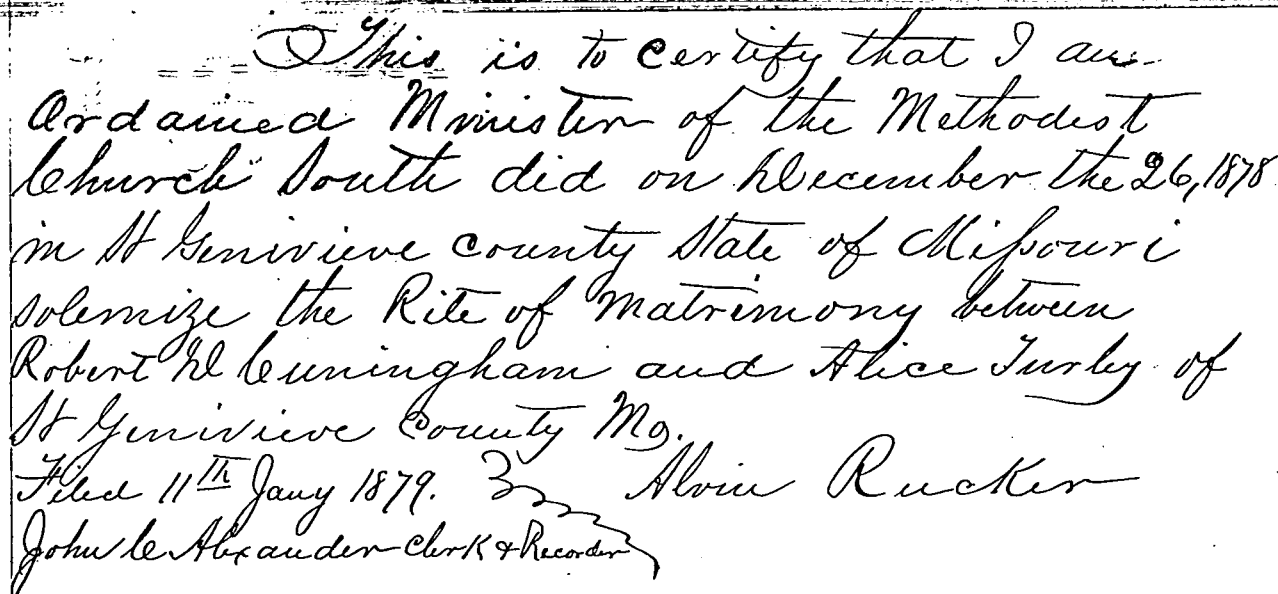 This is to certify that I an
Ordained Minister of the Methodest
Church South did on December the 26, 1878
in St Genivieve County State of Missouri
solemnize the Rite of Matrimony between
Robert D Cuningham and Alice Turley of
St Genivieve County Mo.
Filed 11th Jany 1879. Alvin Rucker
John C Alexander Clerk & Recorder